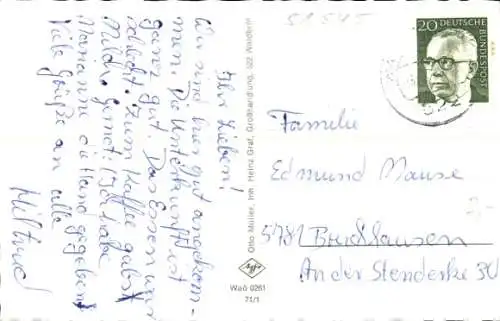 Ihr Lieben!
Wir sind hier gut angekom-
men. Die Unterkunft ist
ganz gut. Das Essen war
schlecht. Zum Kaffee gabs
Milch, gemet: Ich habe
Marianne die Hand gegeben
Viele Grüße an alle
Hiltrud
Otto Müller, Inh. Heinz Graf, Großhandlung, 522 Waldbröl
Agfa
Waö 0261
71/1
51545
20 DEUTSCHE
BUNDESPOST
Familie
Edmund Mause
5781 Bruchhausen
An der Stenderke 30
2,-